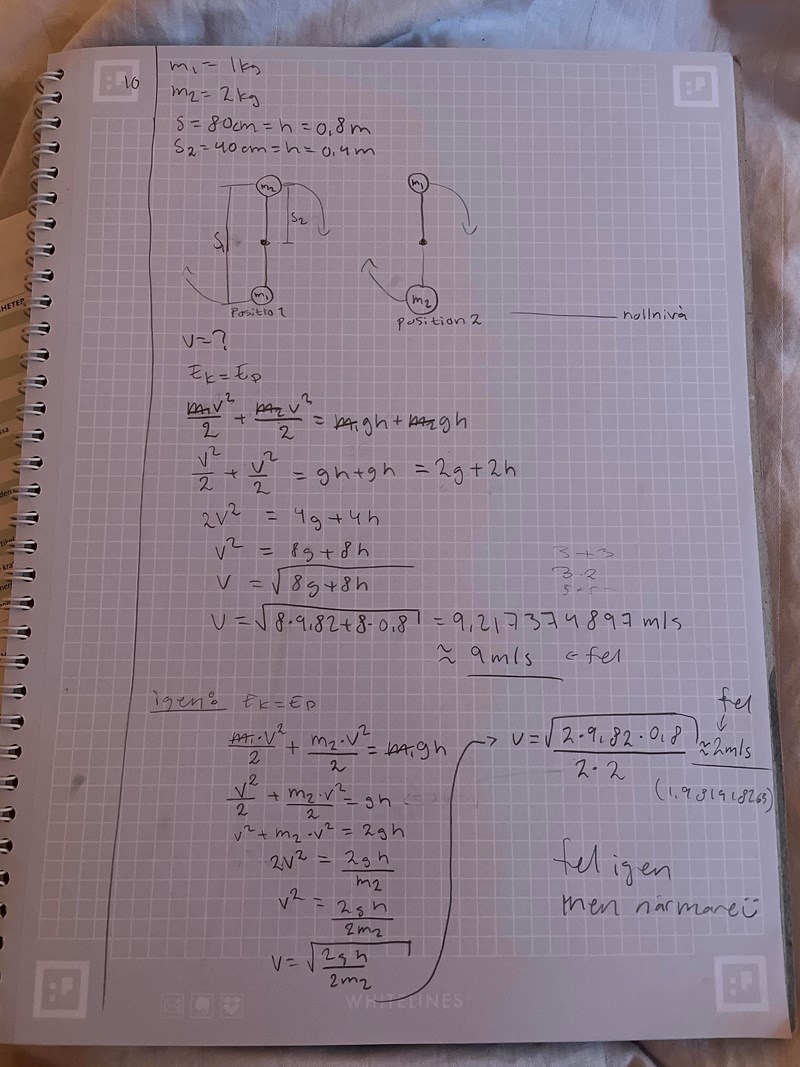 10
m₁ = 1kg
m₂ = 2kg
s = 80cm = h = 0,8m
S₂ = 40cm = h = 0,4m
m₂
m₁
S₁
S₂
m₁
m₂
Position 1
position 2
nollnivå
v = ?
Eₖ = Eₚ
m₁v²/2 + m₂v²/2 = m₁gh + m₂gh
v²/2 + v²/2 = gh + gh = 2g + 2h
2v² = 4g + 4h
v² = 8g + 8h
v = √(8g + 8h)
3 + 3
3 · 2
v = √(8·9,82 + 8·0,8) = 9,217374897 m/s
≈ 9 m/s ← fel
igen: Eₖ = Eₚ
m₁·v²/2 + m₂·v²/2 = m₁gh
v²/2 + m₂·v²/2 = gh
v² + m₂·v² = 2gh
2v² = 2gh/m₂
v² = 2gh/2m₂
v = √(2gh/2m₂)
fel
↓
→ v = √(2·9,82·0,8/2·2) ≈ 2m/s
(1,981918263)
fel igen
men närmare :)
WHITELINES®
HETER